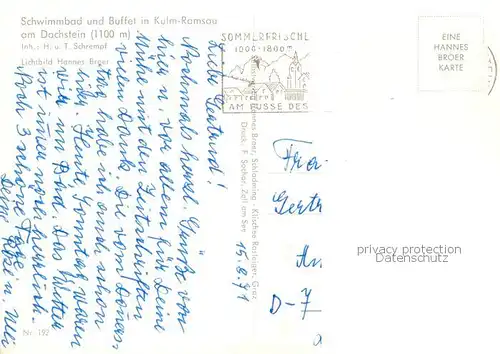 Schwimmbad und Buffet in Kulm-Ramsau
am Dachstein (1100 m)
Inh.: H. u. T. Schrempf
Lichtbild Hannes Broer
SOMMERFRISCHE
1000-1800 m
AM FUSSE DES
EINE
HANNES
BROER
KARTE
Hannes Broer, Schladming - Klischee Rastleiger, Graz
Druck: F. Sochor, Zell am See
15.8.71
Liebe Gertrud!
Nochmals herzl. Grüße von
hier u. vor allem für Deine
Mühe mit den Zeitschriften
vielen Dank. Die vom Donners-
tag habe ich auch schon
Heute, Sonntag waren
wir im Bad. Das Wetter
ist immer noch herrlich.
Noch 3 schöne Tage.
Deine
Frau
Gertr
An
D-7
privacy protection
Datenschutz
Nr. 192